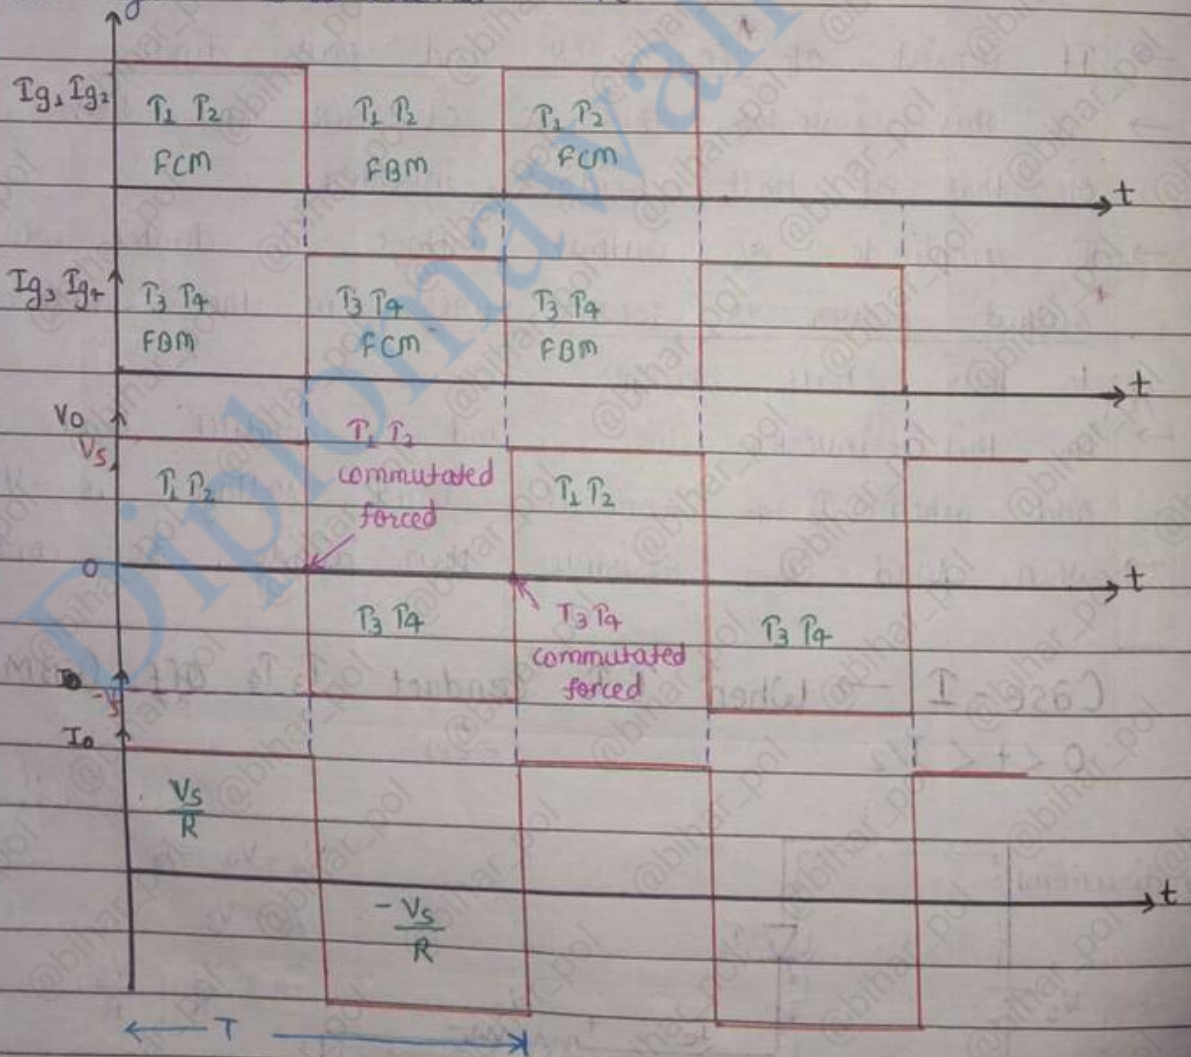 Ig1 Ig2
T1 T2
FCM
T1 T2
FBM
T1 T2
FCM
t
Ig3 Ig4
T3 T4
FBM
T3 T4
FCM
T3 T4
FBM
t
V0
Vs
T1 T2
T1 T2
commutated
forced
T1 T2
0
t
T3 T4
T3 T4
commutated
forced
T3 T4
-Vs
I0
Vs
R
t
-Vs
R
T
Diplomawali
@bihar_pol